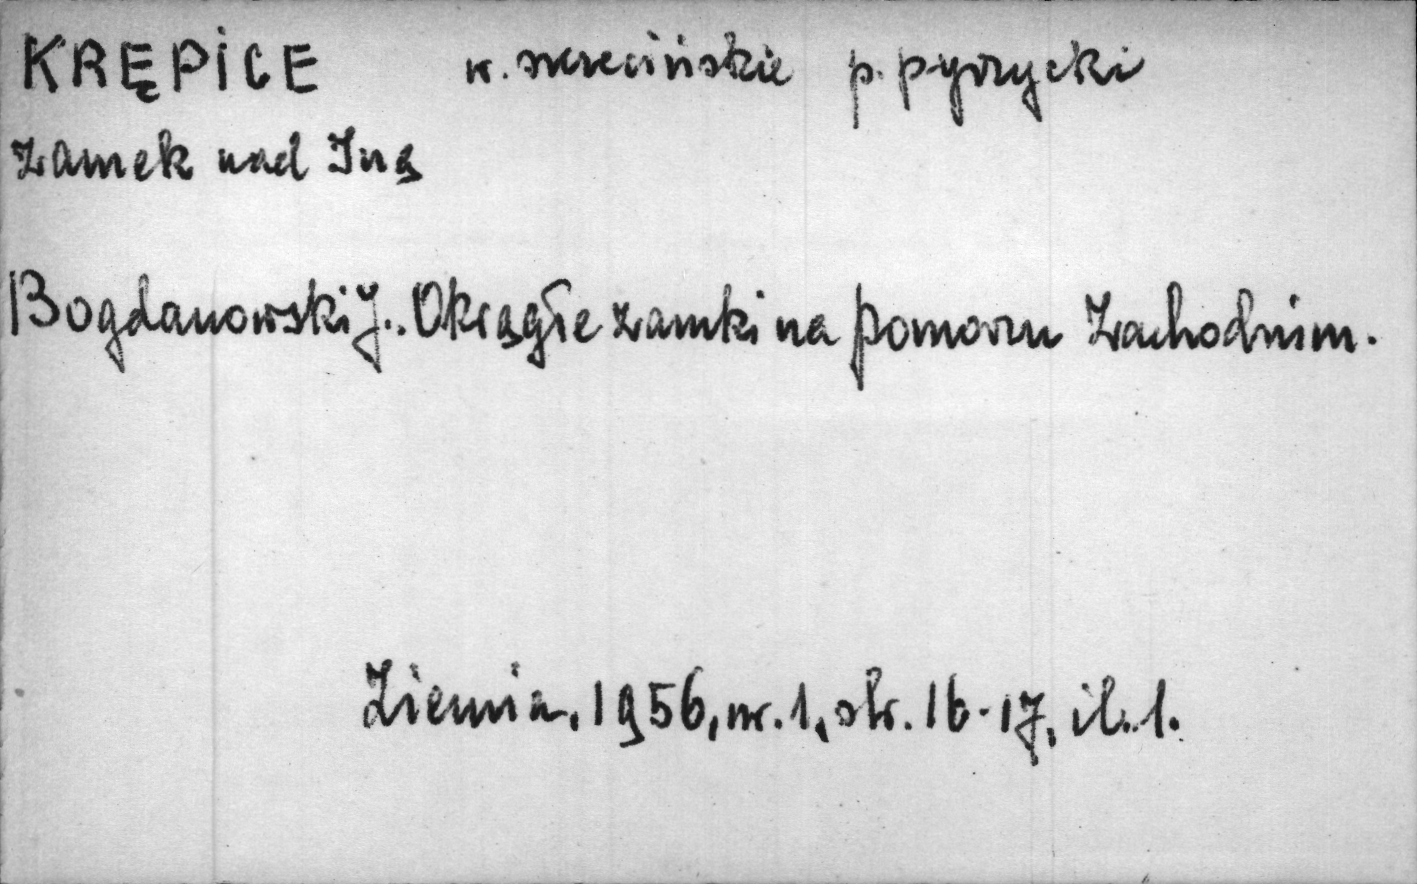 KRĘPICE w. szczecińskie p. pyrzycki
zamek nad Iną
Bogdanowski J.. Okrągłe zamki na Pomorzu Zachodnim.
Ziemia, 1956, nr. 1, str. 16-17, il. 1.